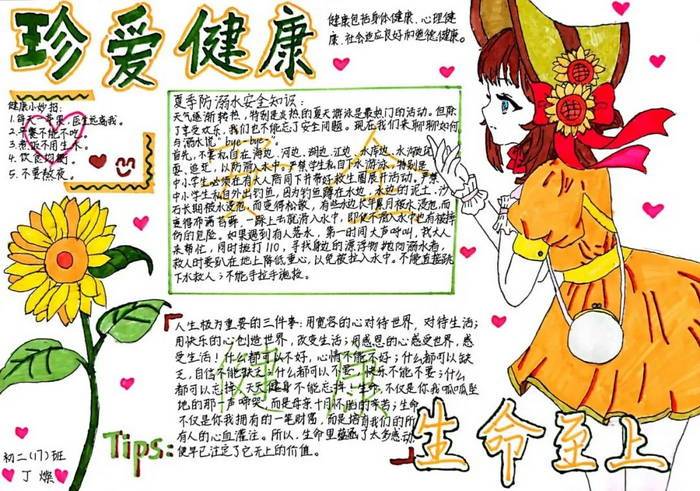 珍爱健康
健康包括身体健康、心理健
康、社会适应良好和道德健康。
健康小妙招:
1.每天一苹果,医生远离我。
2.早餐不能不吃。
3.煮饭不用生水。
4.饮食均衡。
5.不要熬夜。
夏季防溺水安全知识:
天气逐渐转热,特别是炎热的夏天游泳是最热门的活动。但除
了享受欢乐,我们也不能忘了安全问题。现在我们来聊聊如何
与溺水说"bye-bye"
首先,不要私自在海边、河边、湖边、江边、水库边、水沟
边、追赶,以防滑入水中。严禁学生私自下水游泳,特别是
中小学生必须在有大人陪同下并带好救生圈展开活动。严禁
中小学生私自外出钓鱼,因为钓鱼蹲在水边,水边的泥土、沙
石长期被水浸泡,而变得松散,有些水边长年累月被水浸泡,而
重得布满苔藓,一踩上去就滑入水中,即使不滑入水中也有被摔
伤的危险。如果遇到有人落水,第一时间大声呼叫,找大人
来帮忙,同时拨打110,寻找身边的漂浮物抛向溺水者,
救人时要趴在地上降低重心,以免被拉入水中。不能直接跳
下水救人;不能手拉手施救。
人生极为重要的三件事:用宽容的心对待世界,对待生活;
用快乐的心创造世界,改变生活;用感恩的心感受世界,感
受生活!什么都可以不好,心情不能不好;什么都可以缺
乏,自信不能缺乏;什么都可以不要,快乐不能不要;什么
都可以忘掉,天天健身不能忘掉!生命,不仅是你我呱呱坠
地的那一声啼哭,而是母亲十月怀胎的辛苦;生命
不仅是你我拥有的一笔财富,而是诸自我们的所
有人的心血灌注。所以,生命里蕴涵了太多感动
便早已注定了它无上的价值。
健康
Tips:
生命至上
初二(17)班
丁燦